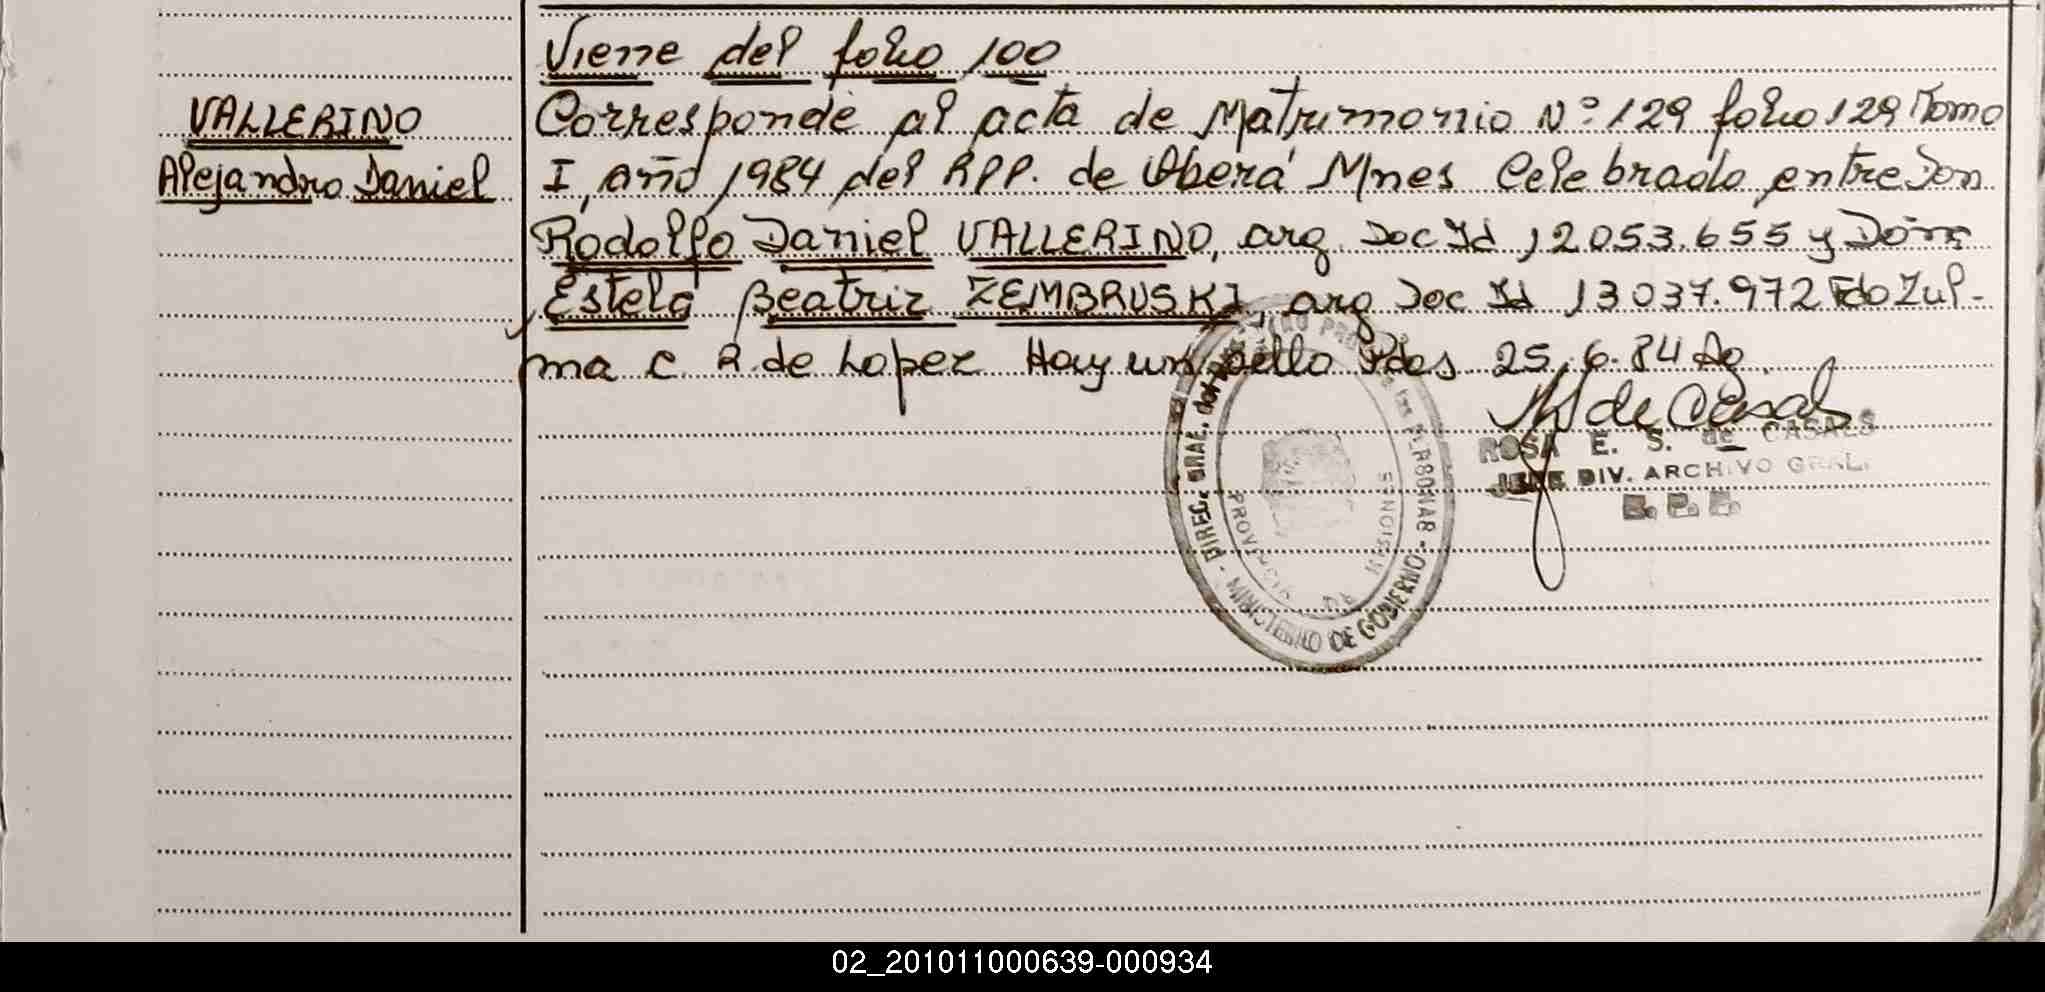 Viene del folio 100
VALLERINO
Alejandro Daniel
Corresponde al acta de Matrimonio Nº: 129 folio 129 Tomo
I, año 1984 del RPP. de Oberá Mnes Celebrado entre Don
Rodolfo Daniel VALLERINO, arg. Doc Id 12053.655 y Doña
Estela Beatriz ZEMBRUSKI, arg Doc Id 13037.972 Fdo Zul-
ma C. R. de Lopez Hay un sello Pdas 25.6.84
ROSA E. S. de CASALS
JEFE DIV. ARCHIVO GRAL.
DIREC. GRAL. DEL REGISTRO PROV. de las PERSONAS - MINISTERIO DE GOBIERNO -
PROVINCIA DE MISIONES
02_201011000639-000934